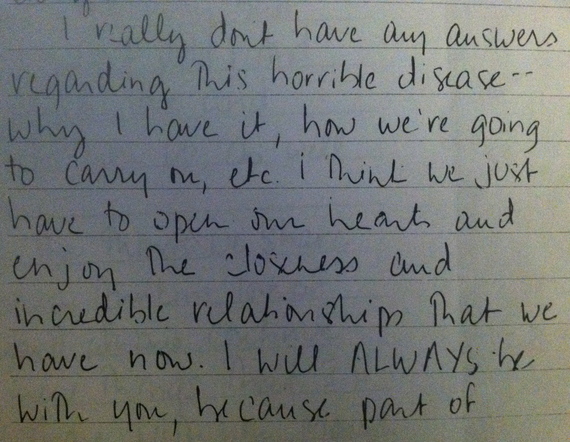 I really dont have any answers
regarding this horrible disease--
why I have it, how we're going
to carry on, etc. i think we just
have to open our hearts and
enjoy the closeness and
incredible relationships that we
have now. I will ALWAYS be
with you, because part of